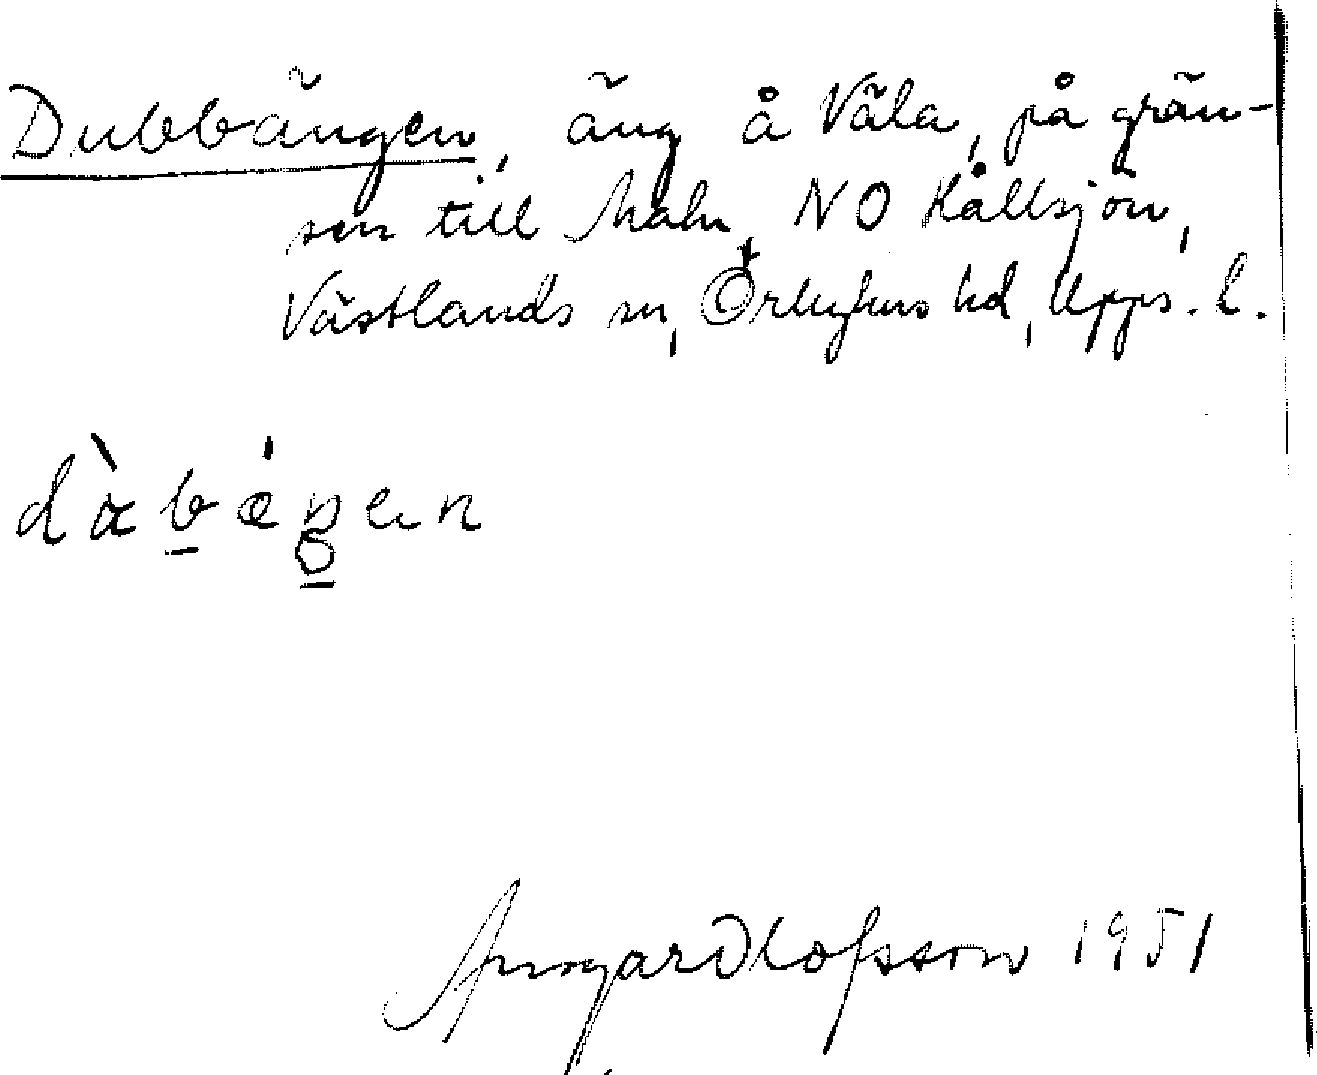 Dubbängen, äng å Väla, på grän-
sen till Malm, NO Kållsjön,
Västlands sn, Örbyhus hd, Upps. l.
dὰbǽŋen
Ansgar Olofsson 1951